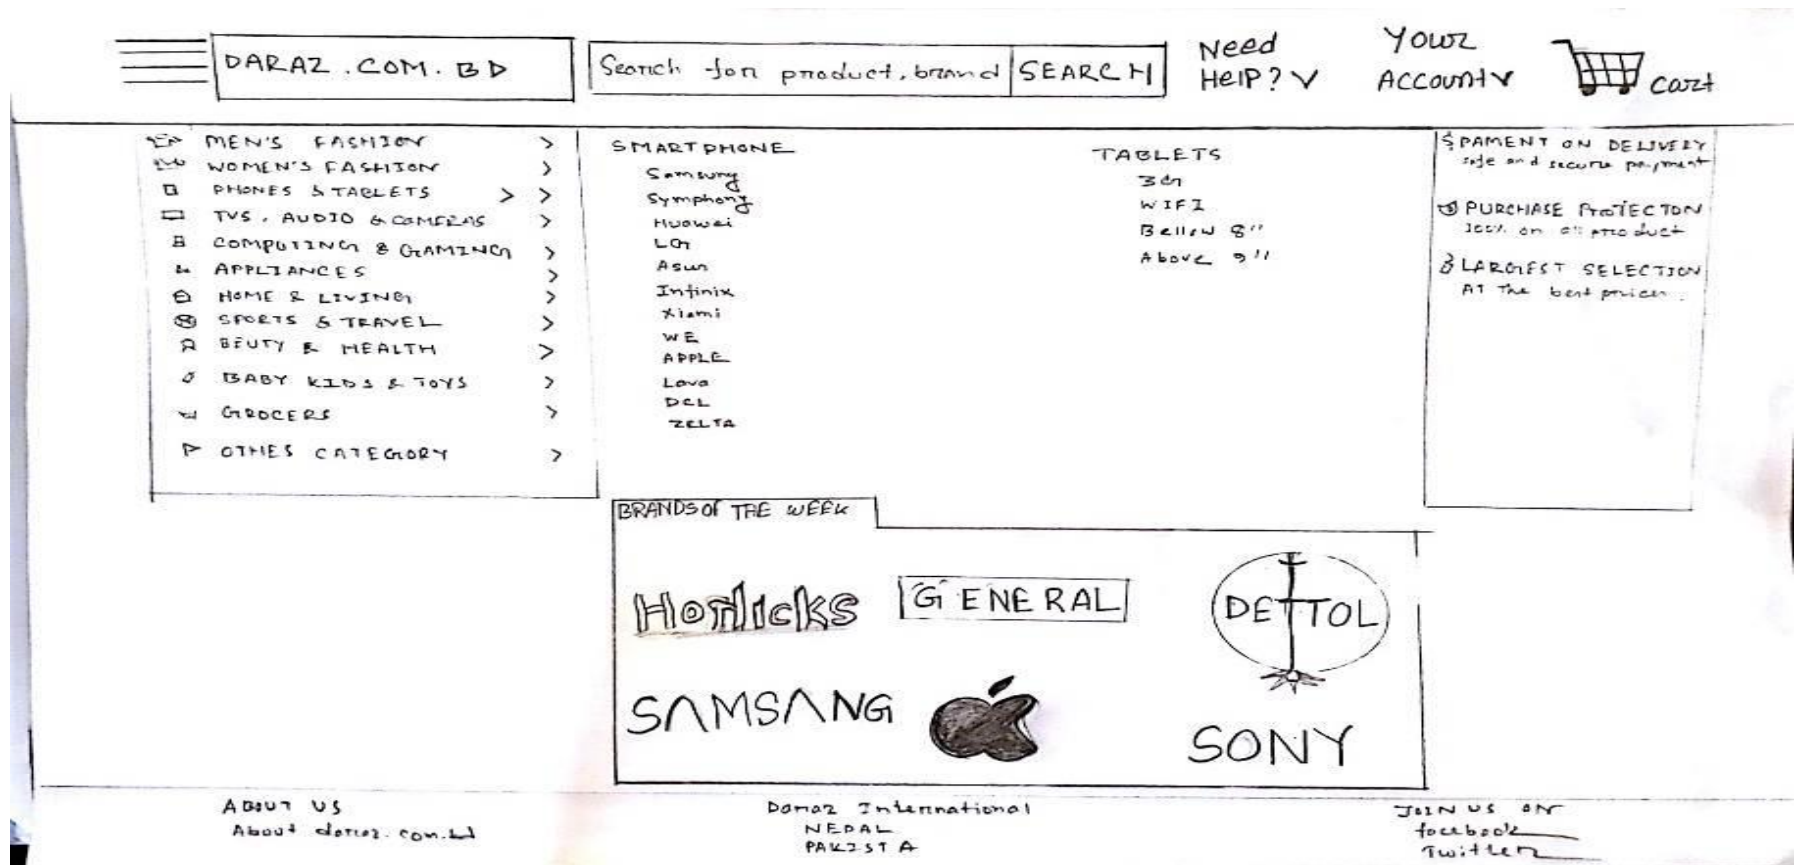 DARAZ.COM.BD
Search for product, brand
SEARCH
Need
HelP? V
Your
ACCOUNT V
Cart
MEN'S FASHION >
WOMEN'S FASHION >
PHONES & TABLETS > >
TVS, AUDIO & CAMERAS >
COMPUTING & GAMING >
APPLIANCES >
HOME & LIVING >
SPORTS & TRAVEL >
BEUTY & HEALTH >
BABY KIDS & TOYS >
GROCERS >
OTHES CATEGORY >
SMARTPHONE
Samsung
Symphony
Huawei
LG
Asus
Infinix
Xiami
WE
APPLE
Lava
DCL
ZELTA
TABLETS
3G
WIFI
Bellow 8"
Above 9"
$ PAMENT ON DELIVERY
safe and secure payment
PURCHASE PROTECTON
100% on all product
LARGEST SELECTION
AT The best prices.
BRANDS OF THE WEEK
Horlicks
GENERAL
DETTOL
SAMSANG
SONY
ABOUT US
About daraz.com.bd
Daraz International
NEPAL
PAKISTA
JOIN US ON
facebook
Twitter